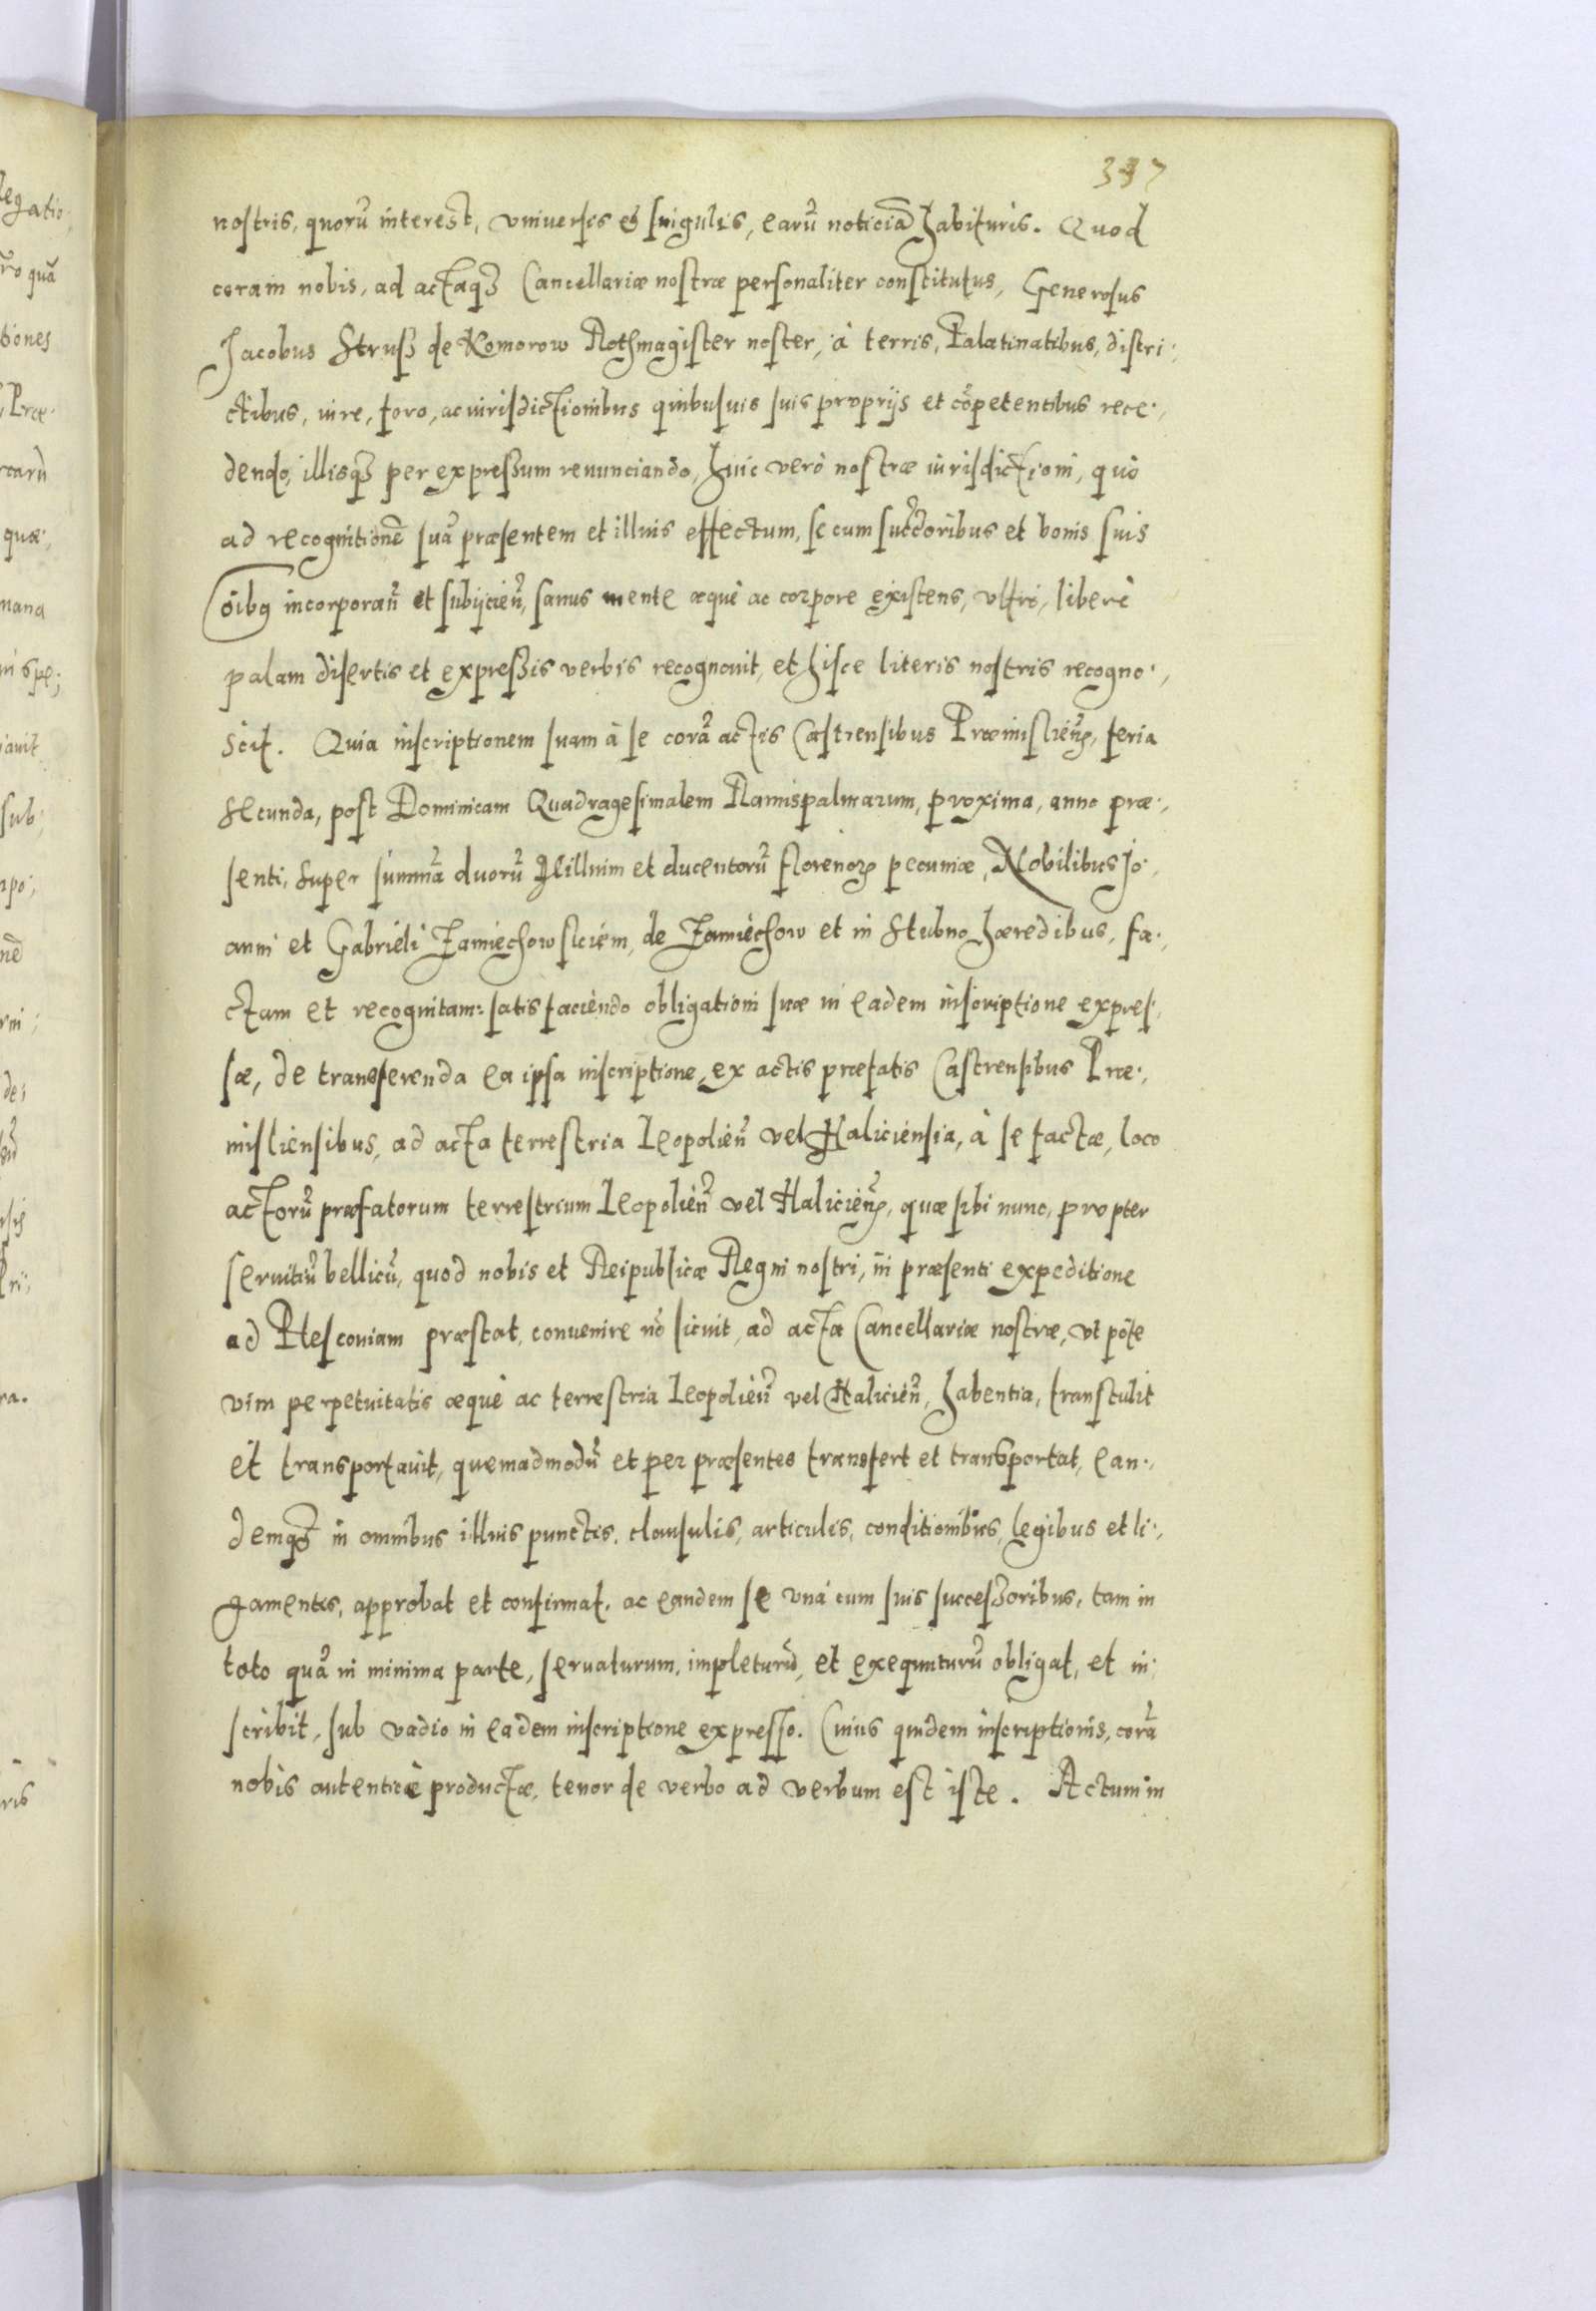 337
nostris, quorũ interest, vniuersis et singulis, earũ noticiã habituris. Quod
coram nobis, ad actaqȝ Cancellariæ nostræ personaliter constitutus, Generosus
Jacobus Struß de Komorow Rothmagister noster, à terris, Palatinatibus, distri:
ctibus, iure, foro, ac iurisdictionibus quibusuis suis proprijs et cõpetentibus rece:,
dendo, illisqȝ per expreßum renunciando, huic verò nostræ iurisdictioni, quò
ad recognitionẽ suã præsentem et illius effectum, se cum suc̃c̃oribus et bonis suis
õibꝰ incorporañ et subijcieñ, sanus mente æquè ac corpore existens, vltrò, liberè
palam disertis et expreßis verbis recognouit, et hisce literis nostris recogno:,
scit. Quia inscriptionem suam à se corã actis Castrensibus Præmislieñ, feria
secunda, post Dominicam Quadragesimalem Ramispalmarum, proxima, anno præ:,
senti, super summã duorũ Millium et ducentorũ florenoꝝ pecuniæ, Nobilibus Jo:,
anni et Gabrieli Zamiechowsciem, de Zamiechow et in Stubno hæredibus, fa:,
ctam et recognitam: satisfaciendo obligationi suæ in eadem inscriptione expres:,
sæ, de transferenda ea ipsa inscriptione, ex actis præfatis Castrensibus Præ:,
misliensibus, ad acta terrestria Leopolieñ vel Haliciensia, à se factæ, loco
actorũ præfatorum terrestrium Leopolieñ vel Halicieñ, quæ sibi nunc, propter
seruitiũ bellicũ, quod nobis et Reipublicæ Regni nostri, in præsenti expeditione
ad Plesconiam præstat, conuenire nõ licuit, ad acta Cancellariæ nostræ, vt põte
vim perpetuitatis æquè ac terrestria Leopolieñ vel Halicieñ, habentia, transtulit
et transportauit, quemadmodũ et per præsentes transfert et transportat, ean:,
demqȝ in omnibus illius punctis, clausulis, articulis, conditionibus, legibus et li:,
gamentis, approbat et confirmat, ac eandem se vnà cum suis succeßoribus, tam in
toto quã in minima parte, seruaturum, impleturũ, et exequuturũ obligat, et in:
scribit, sub vadio in eadem inscriptione expresso. Cuius quidem inscriptionis, corã
nobis autenticè productæ, tenor de verbo ad verbum est iste. Actum in